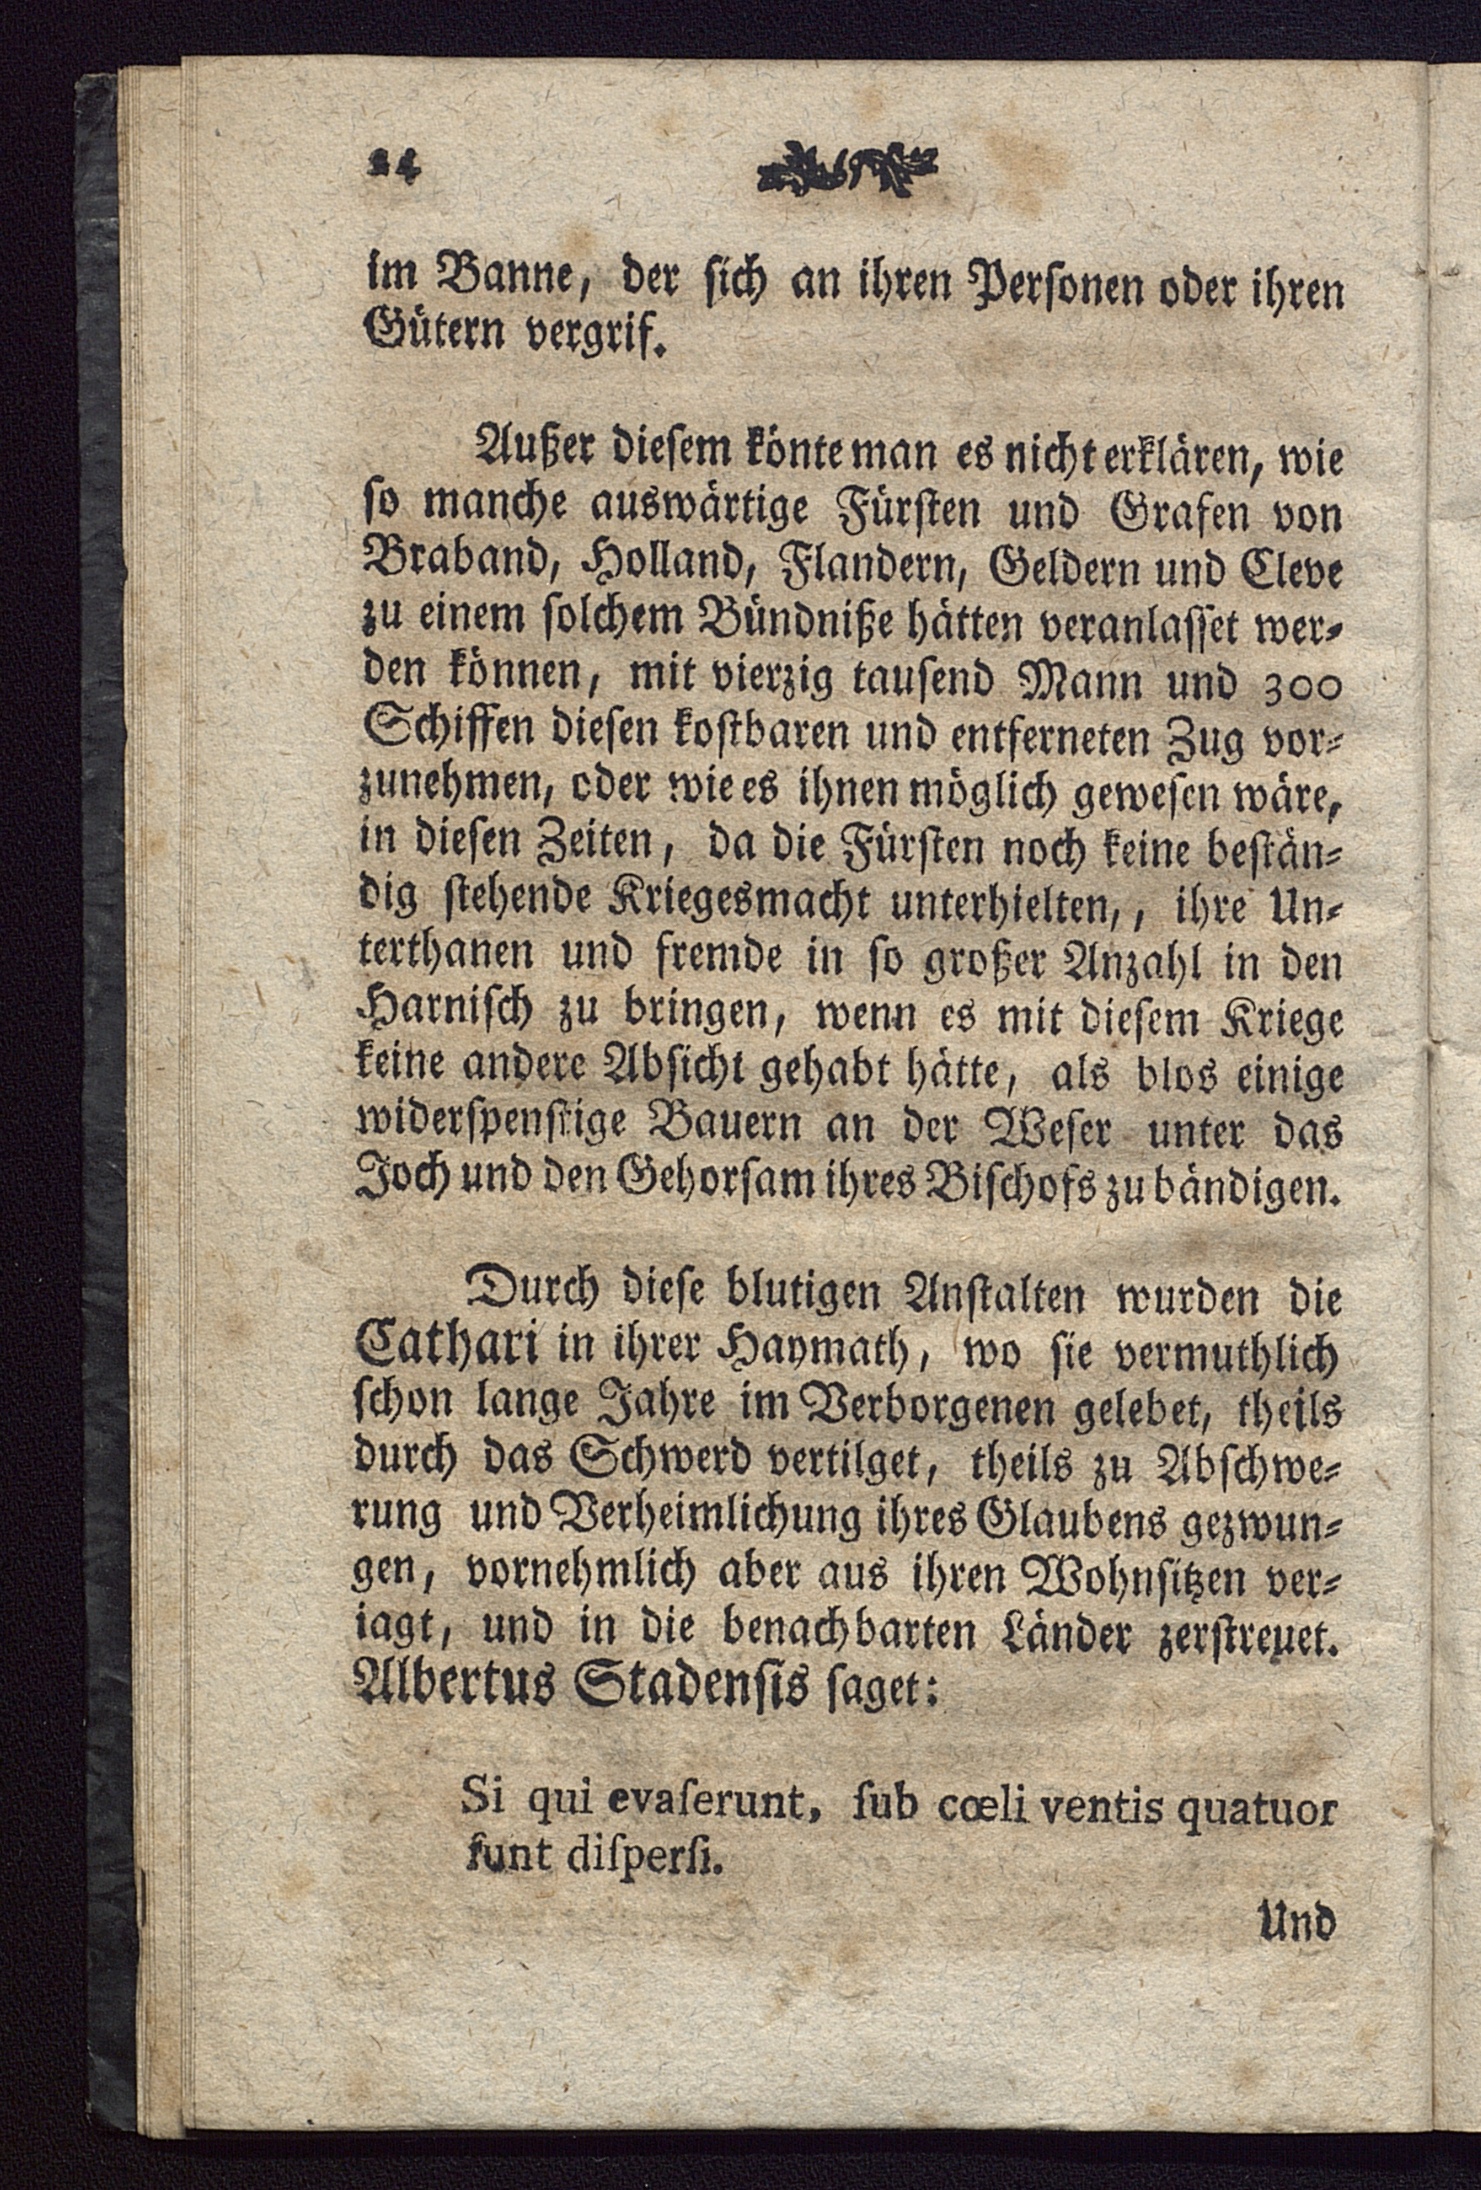 24
im Banne, der sich an ihren Personen oder ihren
Gütern vergrif.
Außer diesem könte man es nicht erklären, wie
so manche auswärtige Fürsten und Grafen von
Braband, Holland, Flandern, Geldern und Cleve
zu einem solchem Bündniße hätten veranlasset wer-
den können, mit vierzig tausend Mann und 300
Schiffen diesen kostbaren und entferneten Zug vor-
zunehmen, oder wie es ihnen möglich gewesen wäre,
in diesen Zeiten, da die Fürsten noch keine bestän-
dig stehende Kriegesmacht unterhielten,, ihre Un-
terthanen und fremde in so großer Anzahl in den
Harnisch zu bringen, wenn es mit diesem Kriege
keine andere Absicht gehabt hätte, als blos einige
widerspenstige Bauern an der Weser unter das
Joch und den Gehorsam ihres Bischofs zu bändigen.
Durch diese blutigen Anstalten wurden die
Cathari in ihrer Haymath, wo sie vermuthlich
schon lange Jahre im Verborgenen gelebet, theils
durch das Schwerd vertilget, theils zu Abschwe-
rung und Verheimlichung ihres Glaubens gezwun-
gen, vornehmlich aber aus ihren Wohnsitzen ver-
jagt, und in die benachbarten Länder zerstreuet.
Albertus Stadensis saget:
Si qui evaſerunt, ſub cœli ventis quatuor
ſunt diſperſi.
Und